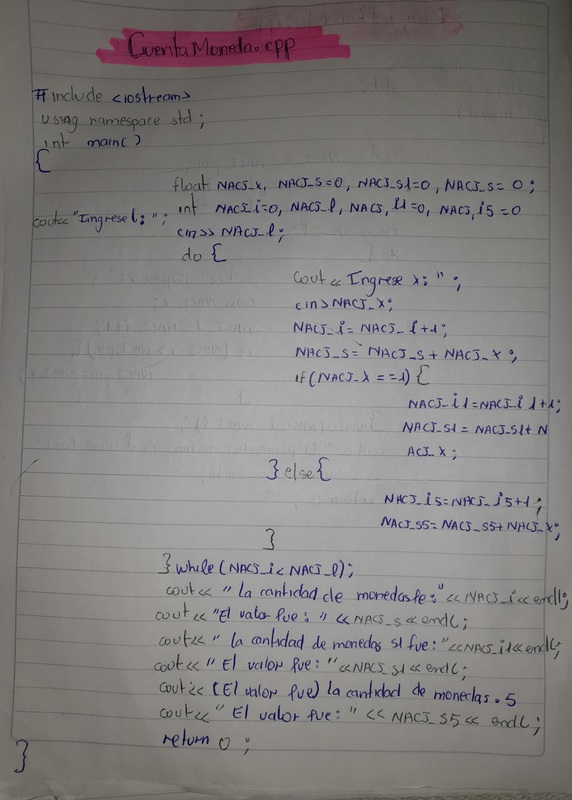 CuentaMoneda.cpp
#include <iostream>
using namespace std;
int main()
{
float NACJ_x, NACJ_s=0, NACJ_s1=0, NACJ_s= 0;
int NACJ_i=0, NACJ_l, NACJ, i1=0, NACJ, i5=0
cout<<"Ingrese l: ";
cin>> NACJ_l;
do {
Cout << Ingrese x: " ;
cin> NACJ_x;
NACJ_i= NACJ_i+1;
NACJ_s= NACJ_s + NACJ_x;
if(NACJ_x ==1) {
NACJ_i1=NACJ_i 1+1;
NACJ_s1 = NACJ_s1+ N
ACJ_x;
} else {
NACJ_i5=NACJ_i5+1;
NACJ_s5=NACJ_s5+NACJ_x;
}
} while (NACJ_i< NACJ_l);
cout<< " la cantidad de monedas fe: "<<NACJ_i<< endl;
cout<< "El valor fue: " << NACJ_s << endl;
cout<< " la cantidad de monedas s1 fue: "<<NACJ_i1<<endl;
cout<< " El valor fue: "<<NACJ_s1<< endl;
cout<< (El valor fue) la cantidad de monedas. 5
cout<< " El valor fue: " << NACJ_s5<< endl;
return 0 ;
}